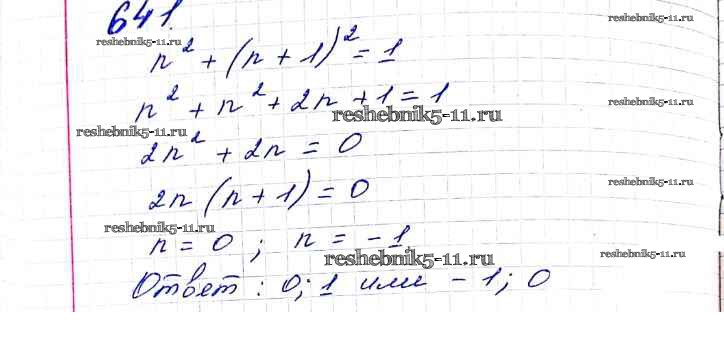 641.
reshebnik5-11.ru reshebnik5-11.ru
n² + (n + 1)² = 1
n² + n² + 2n + 1 = 1
reshebnik5-11.ru
reshebnik5-11.ru
reshebnik5-11.ru
2n² + 2n = 0
reshebnik5-11.ru
2n (n + 1) = 0
reshebnik5-11.ru
n = 0 ; n = -1
reshebnik5-11.ru
reshebnik5-11.ru
Ответ : 0; 1 или -1; 0